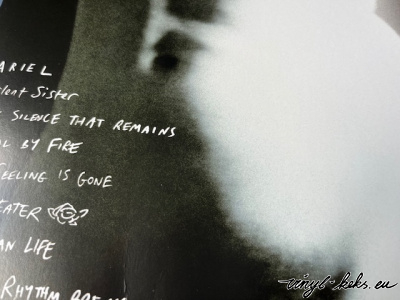 ARIEL
Sister
SILENCE THAT REMAINS
BY FIRE
FEELING IS GONE
EATER
AN LIFE
RHYTHM
vinyl-keks.eu